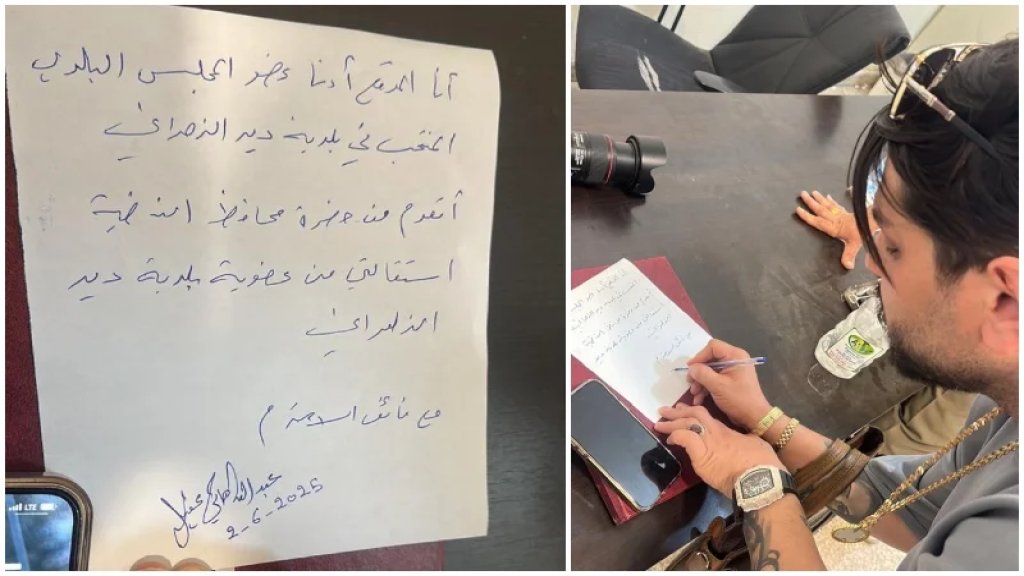 أنا الموقع أدنا عضو المجلس البلدي
المنتخب في بلدية دير الزهراني
أتقدم من حضرة محافظ النبطية
استقالتي من عضوية بلدية دير
الزهراني
مع فائق الاحترام
عبدالله
2-6-2025
LTE